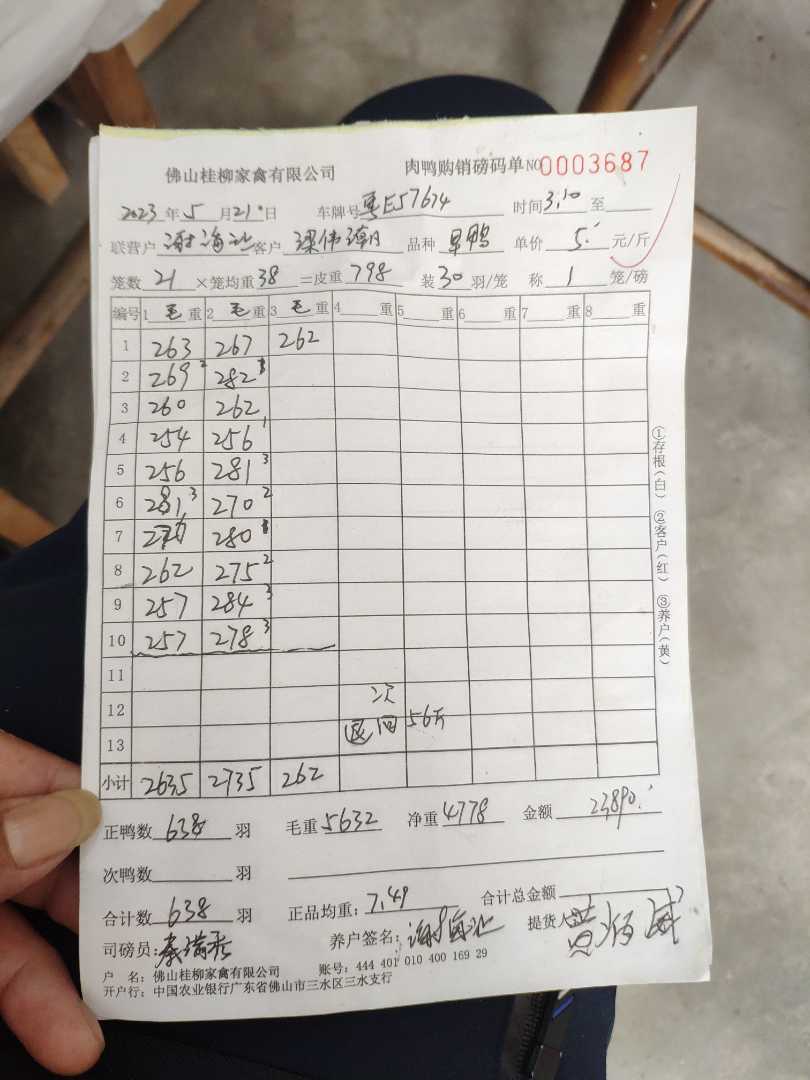 佛山桂柳家禽有限公司 肉鸭购销磅码单 NO 0003687
2023年5月21日 车牌号粤E57674 时间3:10至
联营户 谢海 客户 梁伟 品种 鸭 单价 5. 元/斤
笼数 21 ×笼均重 38 =皮重 798 装 30 羽/笼 称 1 笼/磅
编号 1 毛 重 2 毛 重 3 毛 重 4 重 5 重 6 重 7 重 8 重
1 263 267 262
2 269 2 282 3
3 260 262
4 254 256 1
5 256 281 3
6 281 3 270 2
7 280
8 262 275 2
9 257 284 3
10 257 278 3
11
12 次
13 退回 56斤
小计 2635 2735 262
正鸭数 638 羽 毛重 5632 净重 4778 金额 23890.
次鸭数 羽
合计数 638 羽 正品均重: 7.49 合计总金额
司磅员: 养户签名: 谢海 提货人 黄
户 名: 佛山桂柳家禽有限公司 账号: 444 401 010 400 169 29
开户行: 中国农业银行广东省佛山市三水区三水支行
①存根(白) ②客户(红) ③养户(黄)